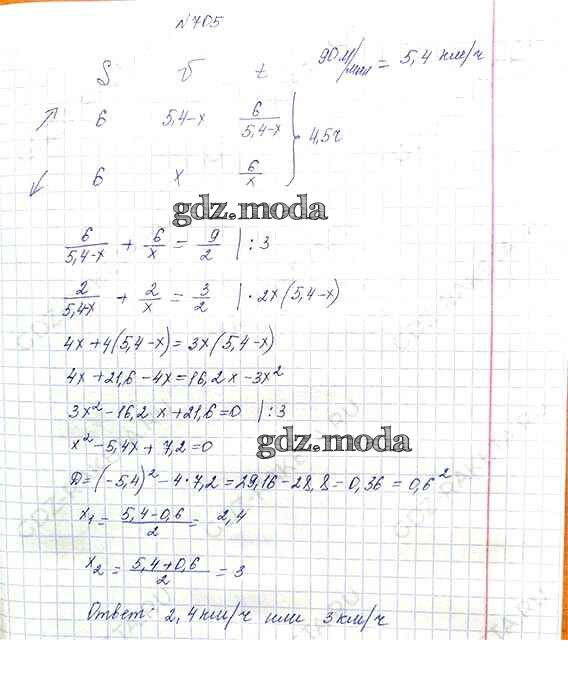 №705
90 м/мин = 5,4 км/ч
S v t
↗ 6 5,4-x 6/(5,4-x)
} 4,5ч
↙ 6 x 6/x
gdz.moda
6/(5,4-x) + 6/x = 9/2 |:3
2/(5,4-x) + 2/x = 3/2 |·2x(5,4-x)
4x+4(5,4-x)=3x(5,4-x)
4x+21,6-4x=16,2x-3x²
3x²-16,2x+21,6=0 |:3
x²-5,4x+7,2=0
gdz.moda
D=(-5,4)²-4·7,2=29,16-28,8=0,36=0,6²
x₁=(5,4-0,6)/2=2,4
x₂=(5,4+0,6)/2=3
Ответ: 2,4 км/ч или 3 км/ч